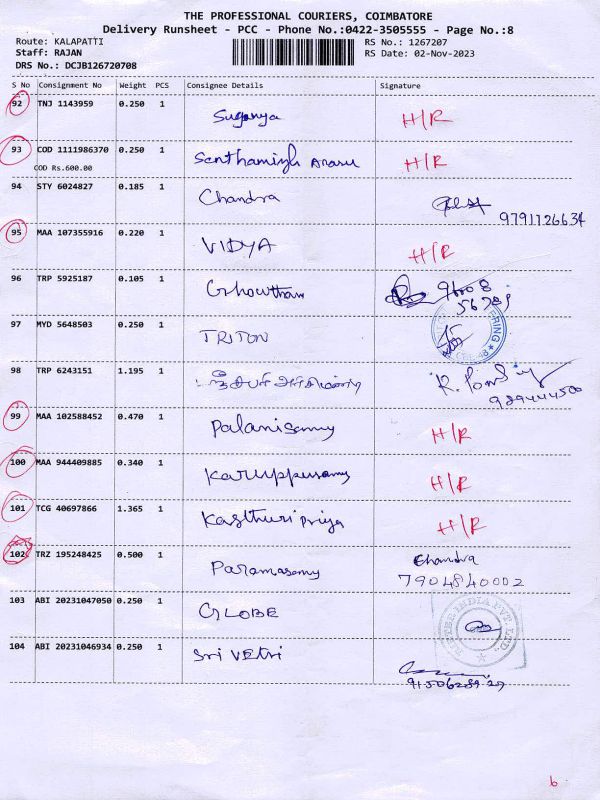 THE PROFESSIONAL COURIERS, COIMBATORE
Delivery Runsheet - PCC - Phone No.:0422-3505555 - Page No.:8
Route: KALAPATTI
RS No.: 1267207
Staff: RAJAN
RS Date: 02-Nov-2023
DRS No.: DCJB126720708
S No Consignment No Weight PCS Consignee Details Signature
92 TNJ 1143959 0.250 1 Suganya H/R
93 COD 1111986370 0.250 1 Senthamizh Arasu H/R
COD Rs.600.00
94 STY 6024827 0.185 1 Chandra
9791126634
95 MAA 107355916 0.220 1 VIDYA H/R
96 TRP 5925187 0.105 1 Ghowtham 96008
56789
97 MYD 5648503 0.250 1 TRITON
98 TRP 6243151 1.195 1
99 MAA 102588452 0.470 1 Palanisamy H/R
100 MAA 944409885 0.340 1 Karuppusamy H/R
101 TCG 40697866 1.365 1 Kasthuri Priya H/R
102 TRZ 195248425 0.500 1 Paramasamy Chandra
7904840002
103 ABI 20231047050 0.250 1 GLOBE
104 ABI 20231046934 0.250 1 Sri Vetri
6